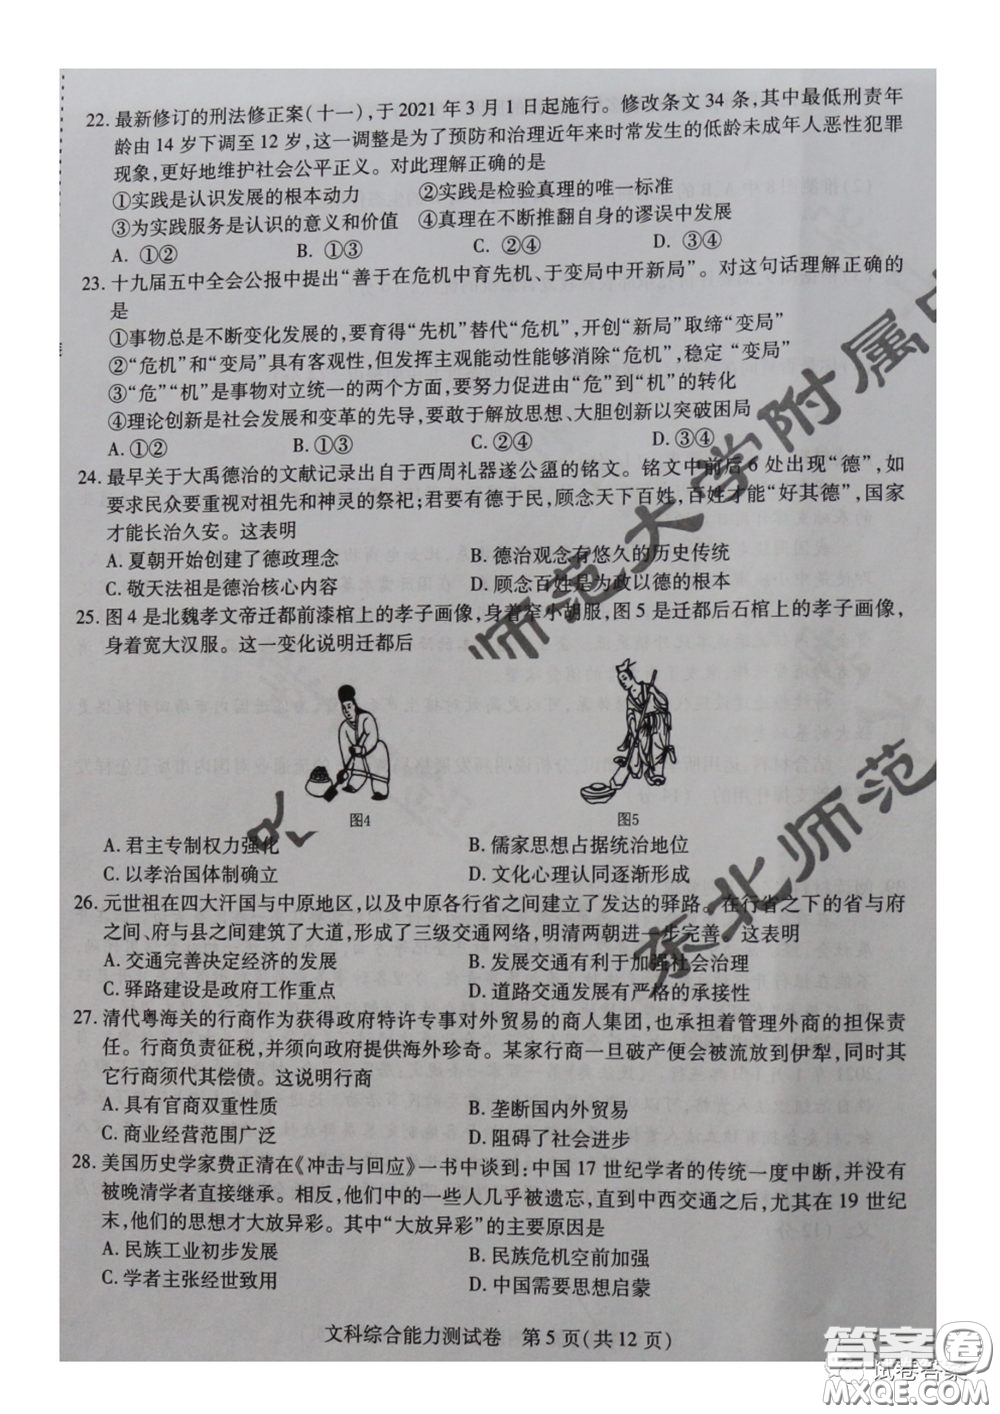 22. 最新修订的刑法修正案(十一),于 2021 年 3 月 1 日起施行。修改条文 34 条,其中最低刑责年
龄由 14 岁下调至 12 岁,这一调整是为了预防和治理近年来时常发生的低龄未成年人恶性犯罪
现象,更好地维护社会公平正义。对此理解正确的是
①实践是认识发展的根本动力 ②实践是检验真理的唯一标准
③为实践服务是认识的意义和价值 ④真理在不断推翻自身的谬误中发展
A. ①② B. ①③ C. ②④ D. ③④
23. 十九届五中全会公报中提出“善于在危机中育先机、于变局中开新局”。对这句话理解正确的
是
①事物总是不断变化发展的,要育得“先机”替代“危机”,开创“新局”取缔“变局”
②“危机”和“变局”具有客观性,但发挥主观能动性能够消除“危机”,稳定 “变局”
③“危”“机”是事物对立统一的两个方面,要努力促进由“危”到“机”的转化
④理论创新是社会发展和变革的先导,要敢于解放思想、大胆创新以突破困局
A. ①② B. ①③ C. ②④ D. ③④
24. 最早关于大禹德治的文献记录出自于西周礼器遂公盨的铭文。铭文中前后 6 处出现“德”,如
要求民众要重视对祖先和神灵的祭祀;君要有德于民,顾念天下百姓,百姓才能“好其德”,国家
才能长治久安。这表明
A. 夏朝开始创建了德政理念 B. 德治观念有悠久的历史传统
C. 敬天法祖是德治核心内容 D. 顾念百姓是为政以德的根本
25. 图 4 是北魏孝文帝迁都前漆棺上的孝子画像,身着窄小胡服,图 5 是迁都后石棺上的孝子画像,
身着宽大汉服。这一变化说明迁都后
图4 图5
A. 君主专制权力强化 B. 儒家思想占据统治地位
C. 以孝治国体制确立 D. 文化心理认同逐渐形成
26. 元世祖在四大汗国与中原地区,以及中原各行省之间建立了发达的驿路。在行省之下的省与府
之间、府与县之间建筑了大道,形成了三级交通网络,明清两朝进一步完善。这表明
A. 交通完善决定经济的发展 B. 发展交通有利于加强社会治理
C. 驿路建设是政府工作重点 D. 道路交通发展有严格的承接性
27. 清代粤海关的行商作为获得政府特许专事对外贸易的商人集团,也承担着管理外商的担保责
任。行商负责征税,并须向政府提供海外珍奇。某家行商一旦破产便会被流放到伊犁,同时其
它行商须代其偿债。这说明行商
A. 具有官商双重性质 B. 垄断国内外贸易
C. 商业经营范围广泛 D. 阻碍了社会进步
28. 美国历史学家费正清在《冲击与回应》一书中谈到:中国 17 世纪学者的传统一度中断,并没有
被晚清学者直接继承。相反,他们中的一些人几乎被遗忘,直到中西交通之后,尤其在 19 世纪
末,他们的思想才大放异彩。其中“大放异彩”的主要原因是
A. 民族工业初步发展 B. 民族危机空前加强
C. 学者主张经世致用 D. 中国需要思想启蒙
文科综合能力测试卷 第 5 页(共 12 页)
师范大学附属中
东北师范
答案圈
试卷答案
MXQE.COM